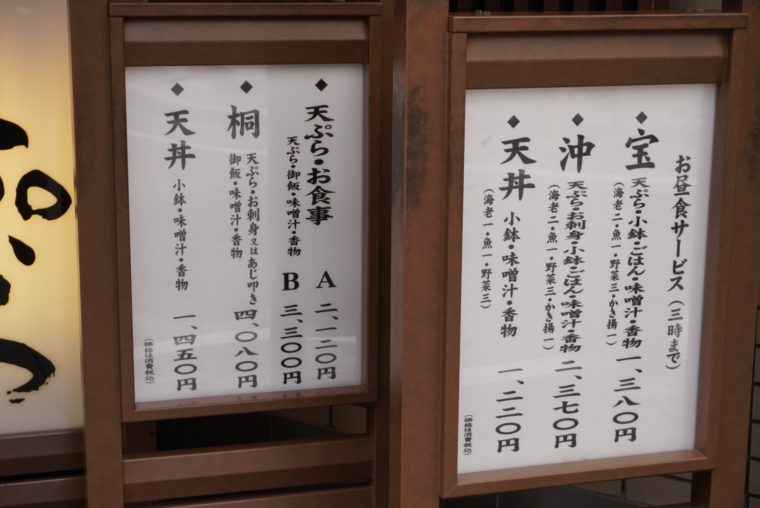 ◆天ぷら・お食事
天ぷら・御飯・味噌汁・香物
A 二、一二〇円
B 三、三〇〇円
◆桐
天ぷら・お刺身又はあじ叩き
御飯・味噌汁・香物
四、〇八〇円
◆天丼 小鉢・味噌汁・香物 一、四五〇円
(価格は消費税込)
お昼食サービス(三時まで)
◆宝 天ぷら・小鉢・ごはん・味噌汁・香物 一、三八〇円
(海老二・魚一・野菜三・かき揚一)
◆沖 天ぷら・お刺身・小鉢・ごはん・味噌汁・香物 二、三七〇円
(海老二・魚一・野菜三・かき揚一)
◆天丼 小鉢・味噌汁・香物 一、二二〇円
(海老一・魚一・野菜三)
(価格は消費税込)